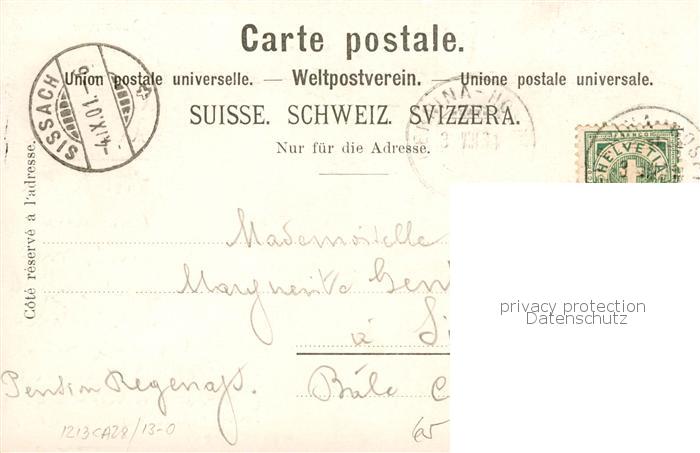 Carte postale.
Union postale universelle. — Weltpostverein. — Unione postale universale.
SUISSE. SCHWEIZ. SVIZZERA.
Nur für die Adresse.
Côté réservé à l'adresse.
SISSACH
-4.IX.01.
FRANCO
HELVETIA
Mademoiselle
Marguerite
à
Pension Regenass. Bâle C
privacy protection
Datenschutz
1213CA28/13-0